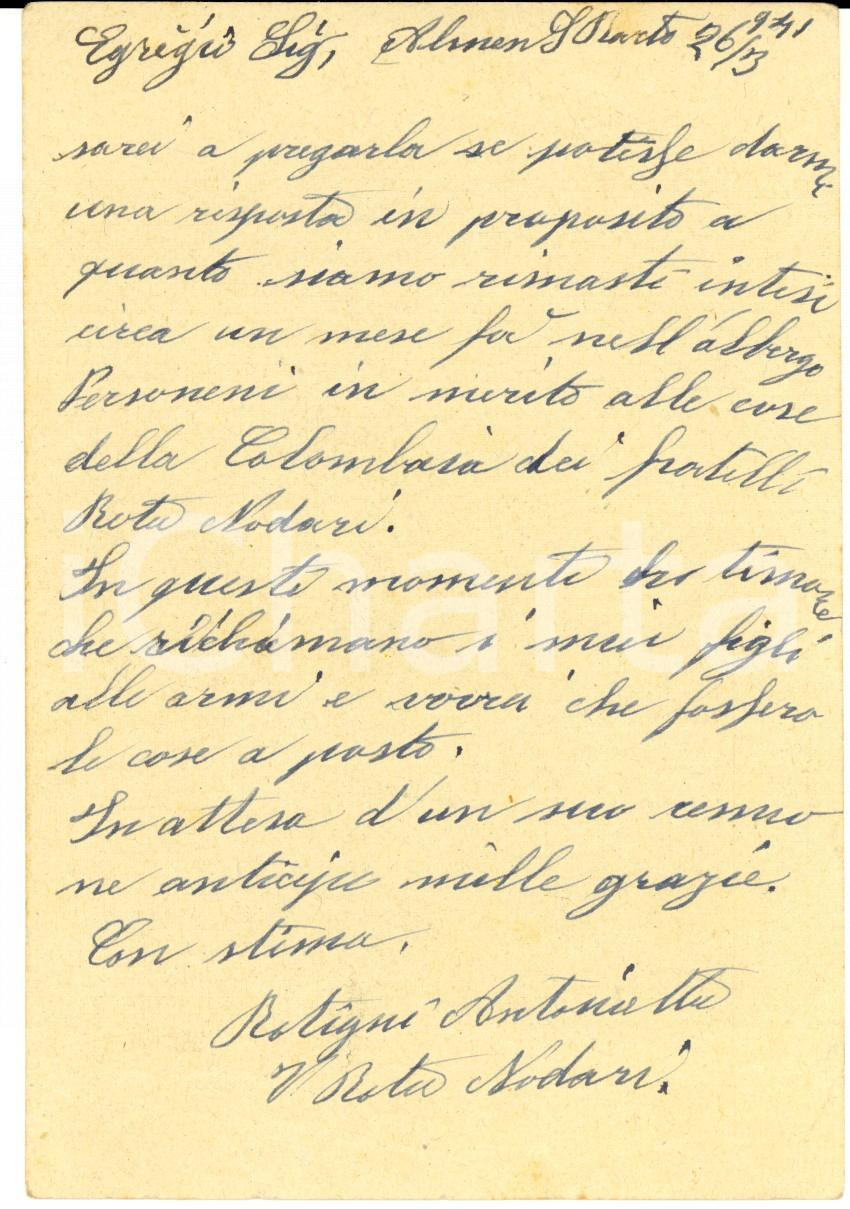 Egregio Sig, Almen S Barto 26/3 941
sarei a pregarla se potesse darmi
una risposta in proposito a
quanto siamo rimasti intesi
circa un mese fa nell'albergo
Personeni in merito alle cose
della Colombaia dei fratelli
Rota Nodari.
In questi momenti ho timore
che richiamano i miei figli
alle armi e vorrei che fossero
le cose a posto.
In attesa d'un suo cenno
ne anticipo mille grazie.
Con stima,
Rotigni Antonietta
V Rota Nodari.
iCharta